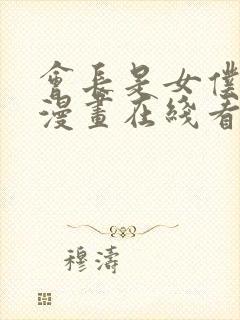 會長是女僕
漫畫在綫看
穆濤